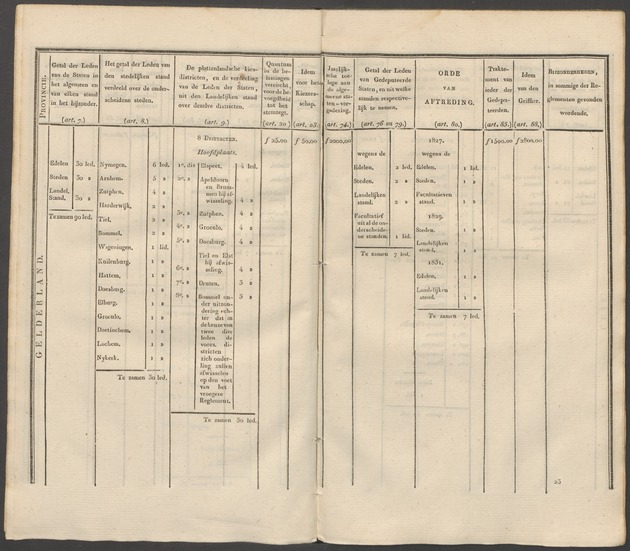 PROVINCIE.
GELDERLAND.
Getal der Leden
van de Staten in
het algemeen en
van elken stand
in het bijzonder.
(art. 7.)
Edelen 30 led.
Steden 30 »
Landel.
Stand. 30 »
Te zamen 90 led.
Het getal der Leden van
den stedelijken stand
verdeeld over de onder-
scheidene steden.
(art. 8.)
Nymegen. 6 led.
Arnhem. 5 »
Zutphen. 4 »
Harderwijk, 2 »
Tiel. 2 »
Bommel. 2 »
Wageningen, 1 lid.
Kuilenburg. 1 »
Hattem, 1 »
Doesburg. 1 »
Elburg. 1 »
Groenlo, 1 »
Doetinchem, 1 »
Lochem, 1 »
Nykerk. 1 »
Te zamen 30 led.
De plattenlandsche kies-
districten, en de verdeeling
van de Leden der Staten,
uit den Landelijken stand
over dezelve districten.
(art. 9.)
8 DISTRICTEN.
Hoofdplaats.
1e. dis Elspeet. 4 led.
2e. » Apeldoorn
en Brum-
men bij af-
wisseling. 4 »
3e. » Zutphen. 4 »
4e. » Groenlo, 4 »
5e. » Doesburg. 4 »
Tiel en Elst
bij afwis-
6e. » seling. 4 »
7e. » Druten. 3 »
8e. » Bommel on-
der uitzon-
dering ech-
ter dat in
de keuze van
twee dier
leden de
voorz. di-
stricten
zich onder-
ling zullen
afwisselen
op den voet
van het
vroegere
Reglement.
Te zamen 30 led.
Quantum
in de be-
lastingen
vereischt,
voor de be-
voegdheid
tot het
stemregt.
(art. 20.)
ƒ 25,00
Idem
voor het
Kiezer-
schap.
(art. 23.)
ƒ 50,00
Jaarlijk-
sche toe-
lage aan
de alge-
meene sta-
ten - ver-
gadering.
(art. 74.)
ƒ 2000,00
Getal der Leden
van Gedeputeerde
Staten, en uit welke
standen respective-
lijk te nemen.
(art. 76 en 79.)
wegens de
Edelen, 2 led.
Steden. 2 »
Landelijken
stand. 2 »
Facultatief
uit al de on-
derscheide-
ne standen. 1 lid.
Te zamen 7 led.
ORDE
VAN
AFTREDING.
(art. 80.)
1827.
wegens de
Edelen, 1 lid.
Steden. 1 »
Facultatieven
stand. 1 »
1829.
Steden. 1 »
Landelijken
stand. 1 »
1831.
Edelen, 1 »
Landelijken
stand. 1 »
Te zamen 7 led.
Trakte-
ment van
ieder der
Gedepu-
teerden.
(art. 85.)
ƒ 1500,00
Idem
van den
Griffier.
(art. 88.)
ƒ 2800,00
BIJZONDERHEDEN,
in sommige der Re-
glementen gevonden
wordende.
23